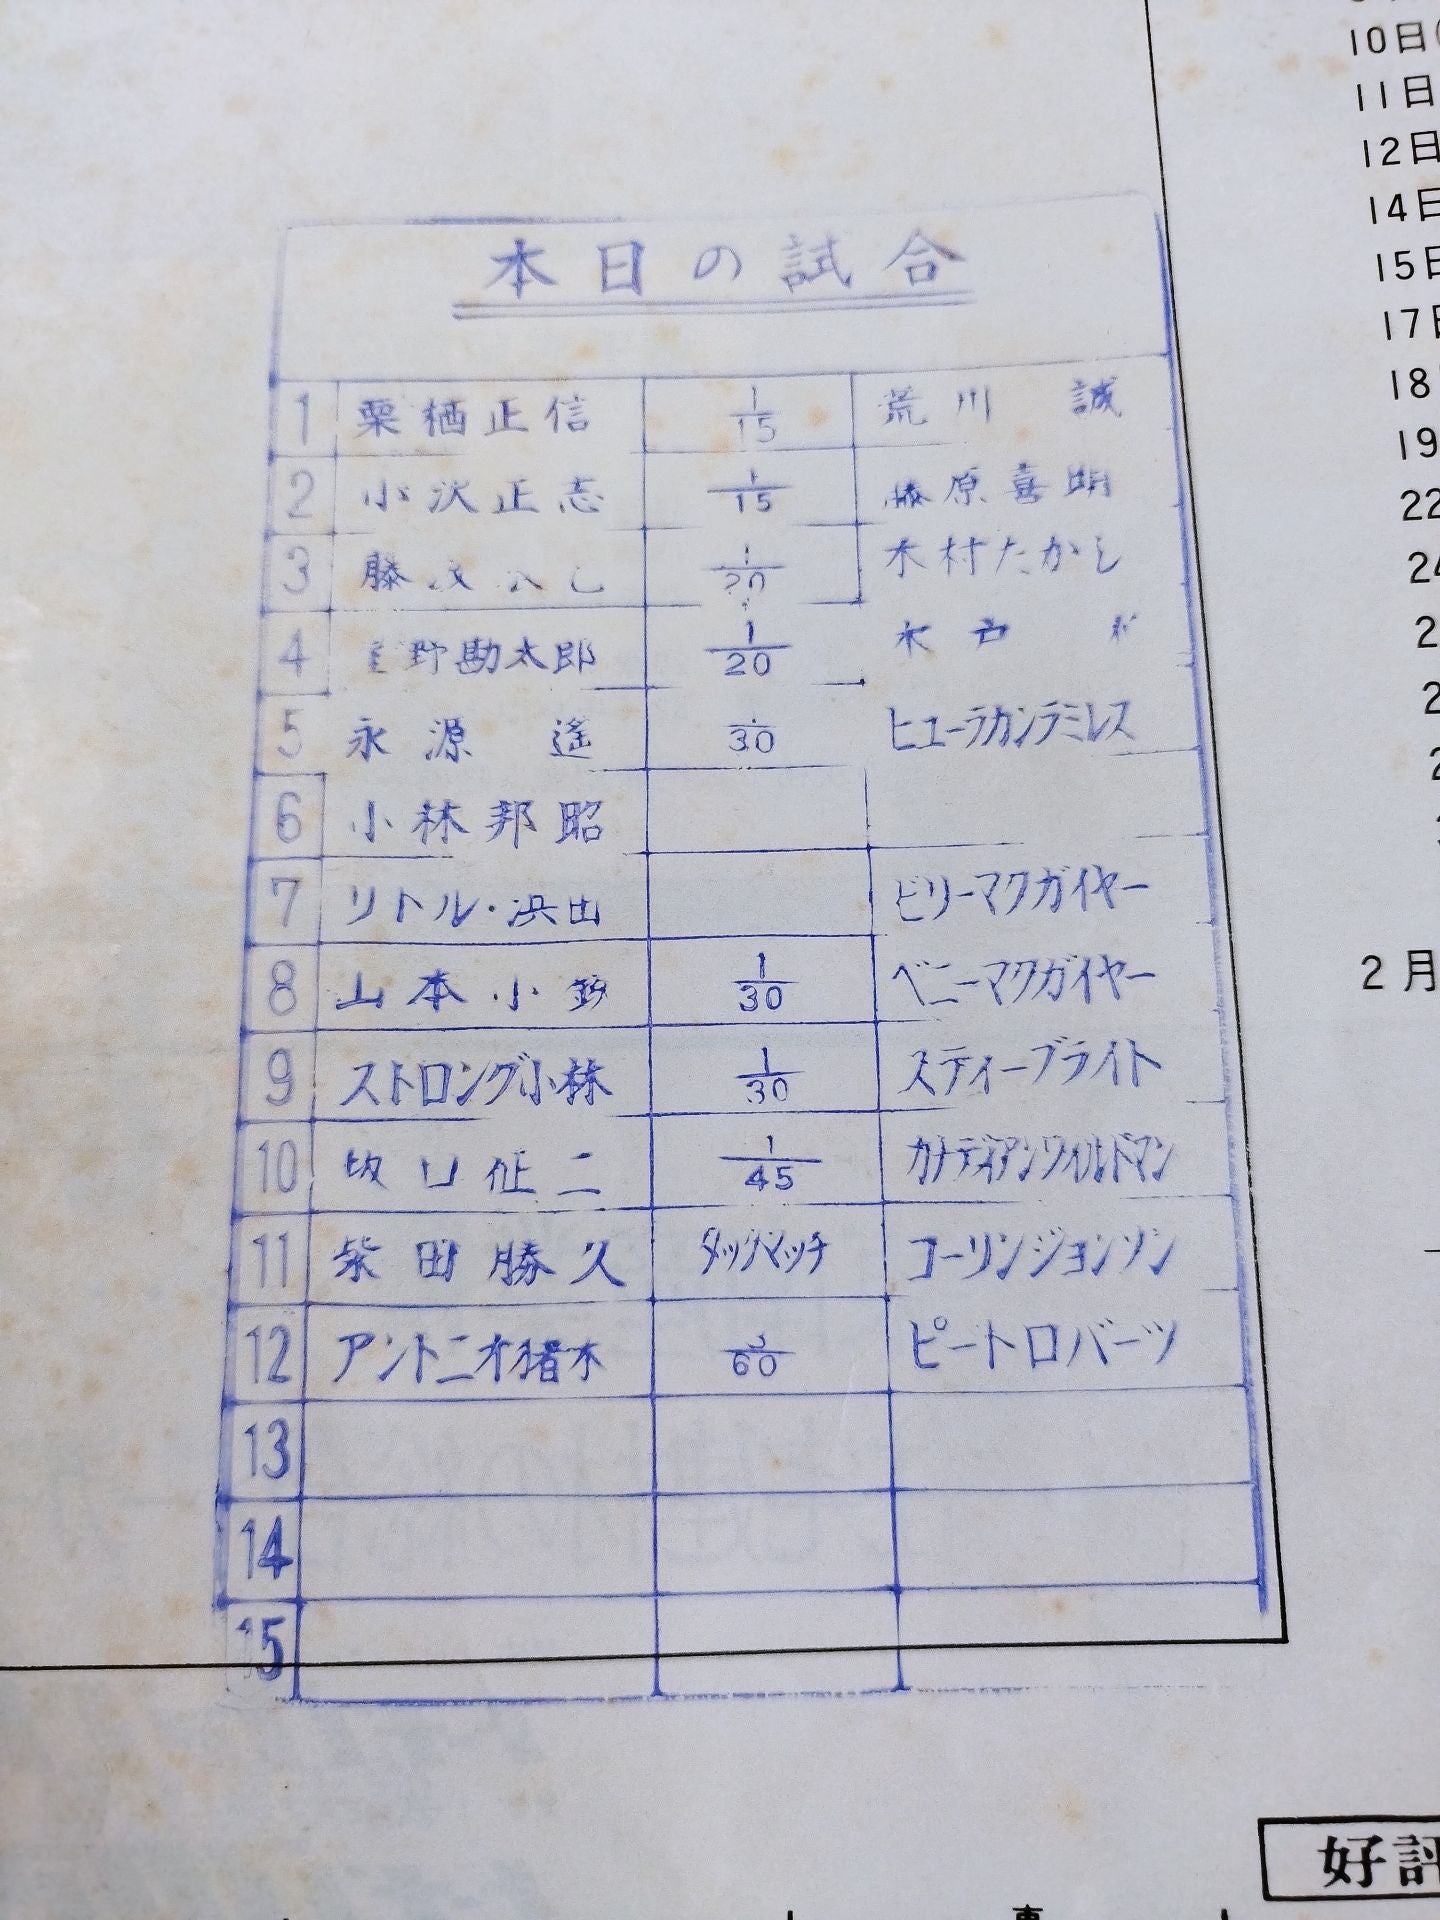 本日の試合
1 栗栖正信 1/15 荒川 誠
2 小沢正志 1/15 藤原喜明
3 藤 1/20 木村たかし
4 野勘太郎 1/20 木戸
5 永源 遙 30 ヒューラカンラミレス
6 小林邦昭
7 リトル・浜田 ビリーマクガイヤー
8 山本小鉄 1/30 ベニーマクガイヤー
9 ストロング小林 1/30 スティーブライト
10 坂口征二 1/45 カナディアンワイルドマン
11 柴田勝久 タッグマッチ コーリンジョンソン
12 アントニオ猪木 3/60 ピートロバーツ
13
14
15
10日(
11日
12日
14日
15日
17日
18
19
22
24
2
2
2
2月
好評